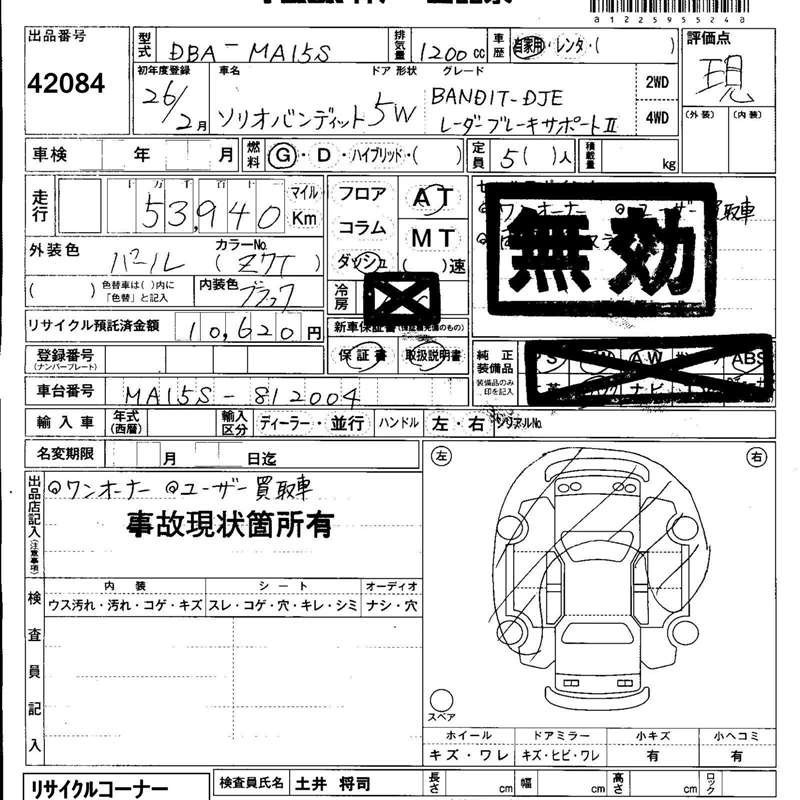 a1225955240
出品番号 型式 DBA-MA15S 排気量 1200cc 車歴 自家用・レンタ・( ) 評価点
42084 初年度登録 車名 ドア 形状 グレード 現
26/2月 ソリオバンディット 5W BANDIT-DJE 2WD
レーダーブレーキサポートⅡ 4WD (外装) (内装)
車検 年 月 燃料 G・D・ハイブリッド・( ) 定員 5( )人 積載量 kg
走行 十万千百十 53,940 マイル Km フロア AT
コラム MT
外装色 パール カラーNo. (Z7T) ダッシュ ( )速
( ) 色替車は( )内に「色替」と記入 内装色 ブラック 冷房
ワンオーナー ユーザー買取車
無効
リサイクル預託済金額 10,620円 新車保証書(保証継続可能のもの)
登録番号 (ナンバープレート) 保証書 取扱説明書 純正装備品 装備品のみ印を記入 PS AW ABS
革 ナビ
車台番号 MA15S-812004
輸入車 年式(西暦) 輸入区分 ディーラー・並行 ハンドル 左・右 シリアルNo.
名変期限 月 日迄
出品店記入(注意事項) ワンオーナー ユーザー買取車
事故現状箇所有
左 右
検査員記入 内装 シート オーディオ
ウス汚れ・汚れ・コゲ・キズ スレ・コゲ・穴・キレ・シミ ナシ・穴
スペア
ホイール ドアミラー 小キズ 小ヘコミ
キズ・ワレ キズ・ヒビ・ワレ 有 有
リサイクルコーナー 検査員氏名 土井 将司 長さ cm 幅 cm 高さ cm ロック